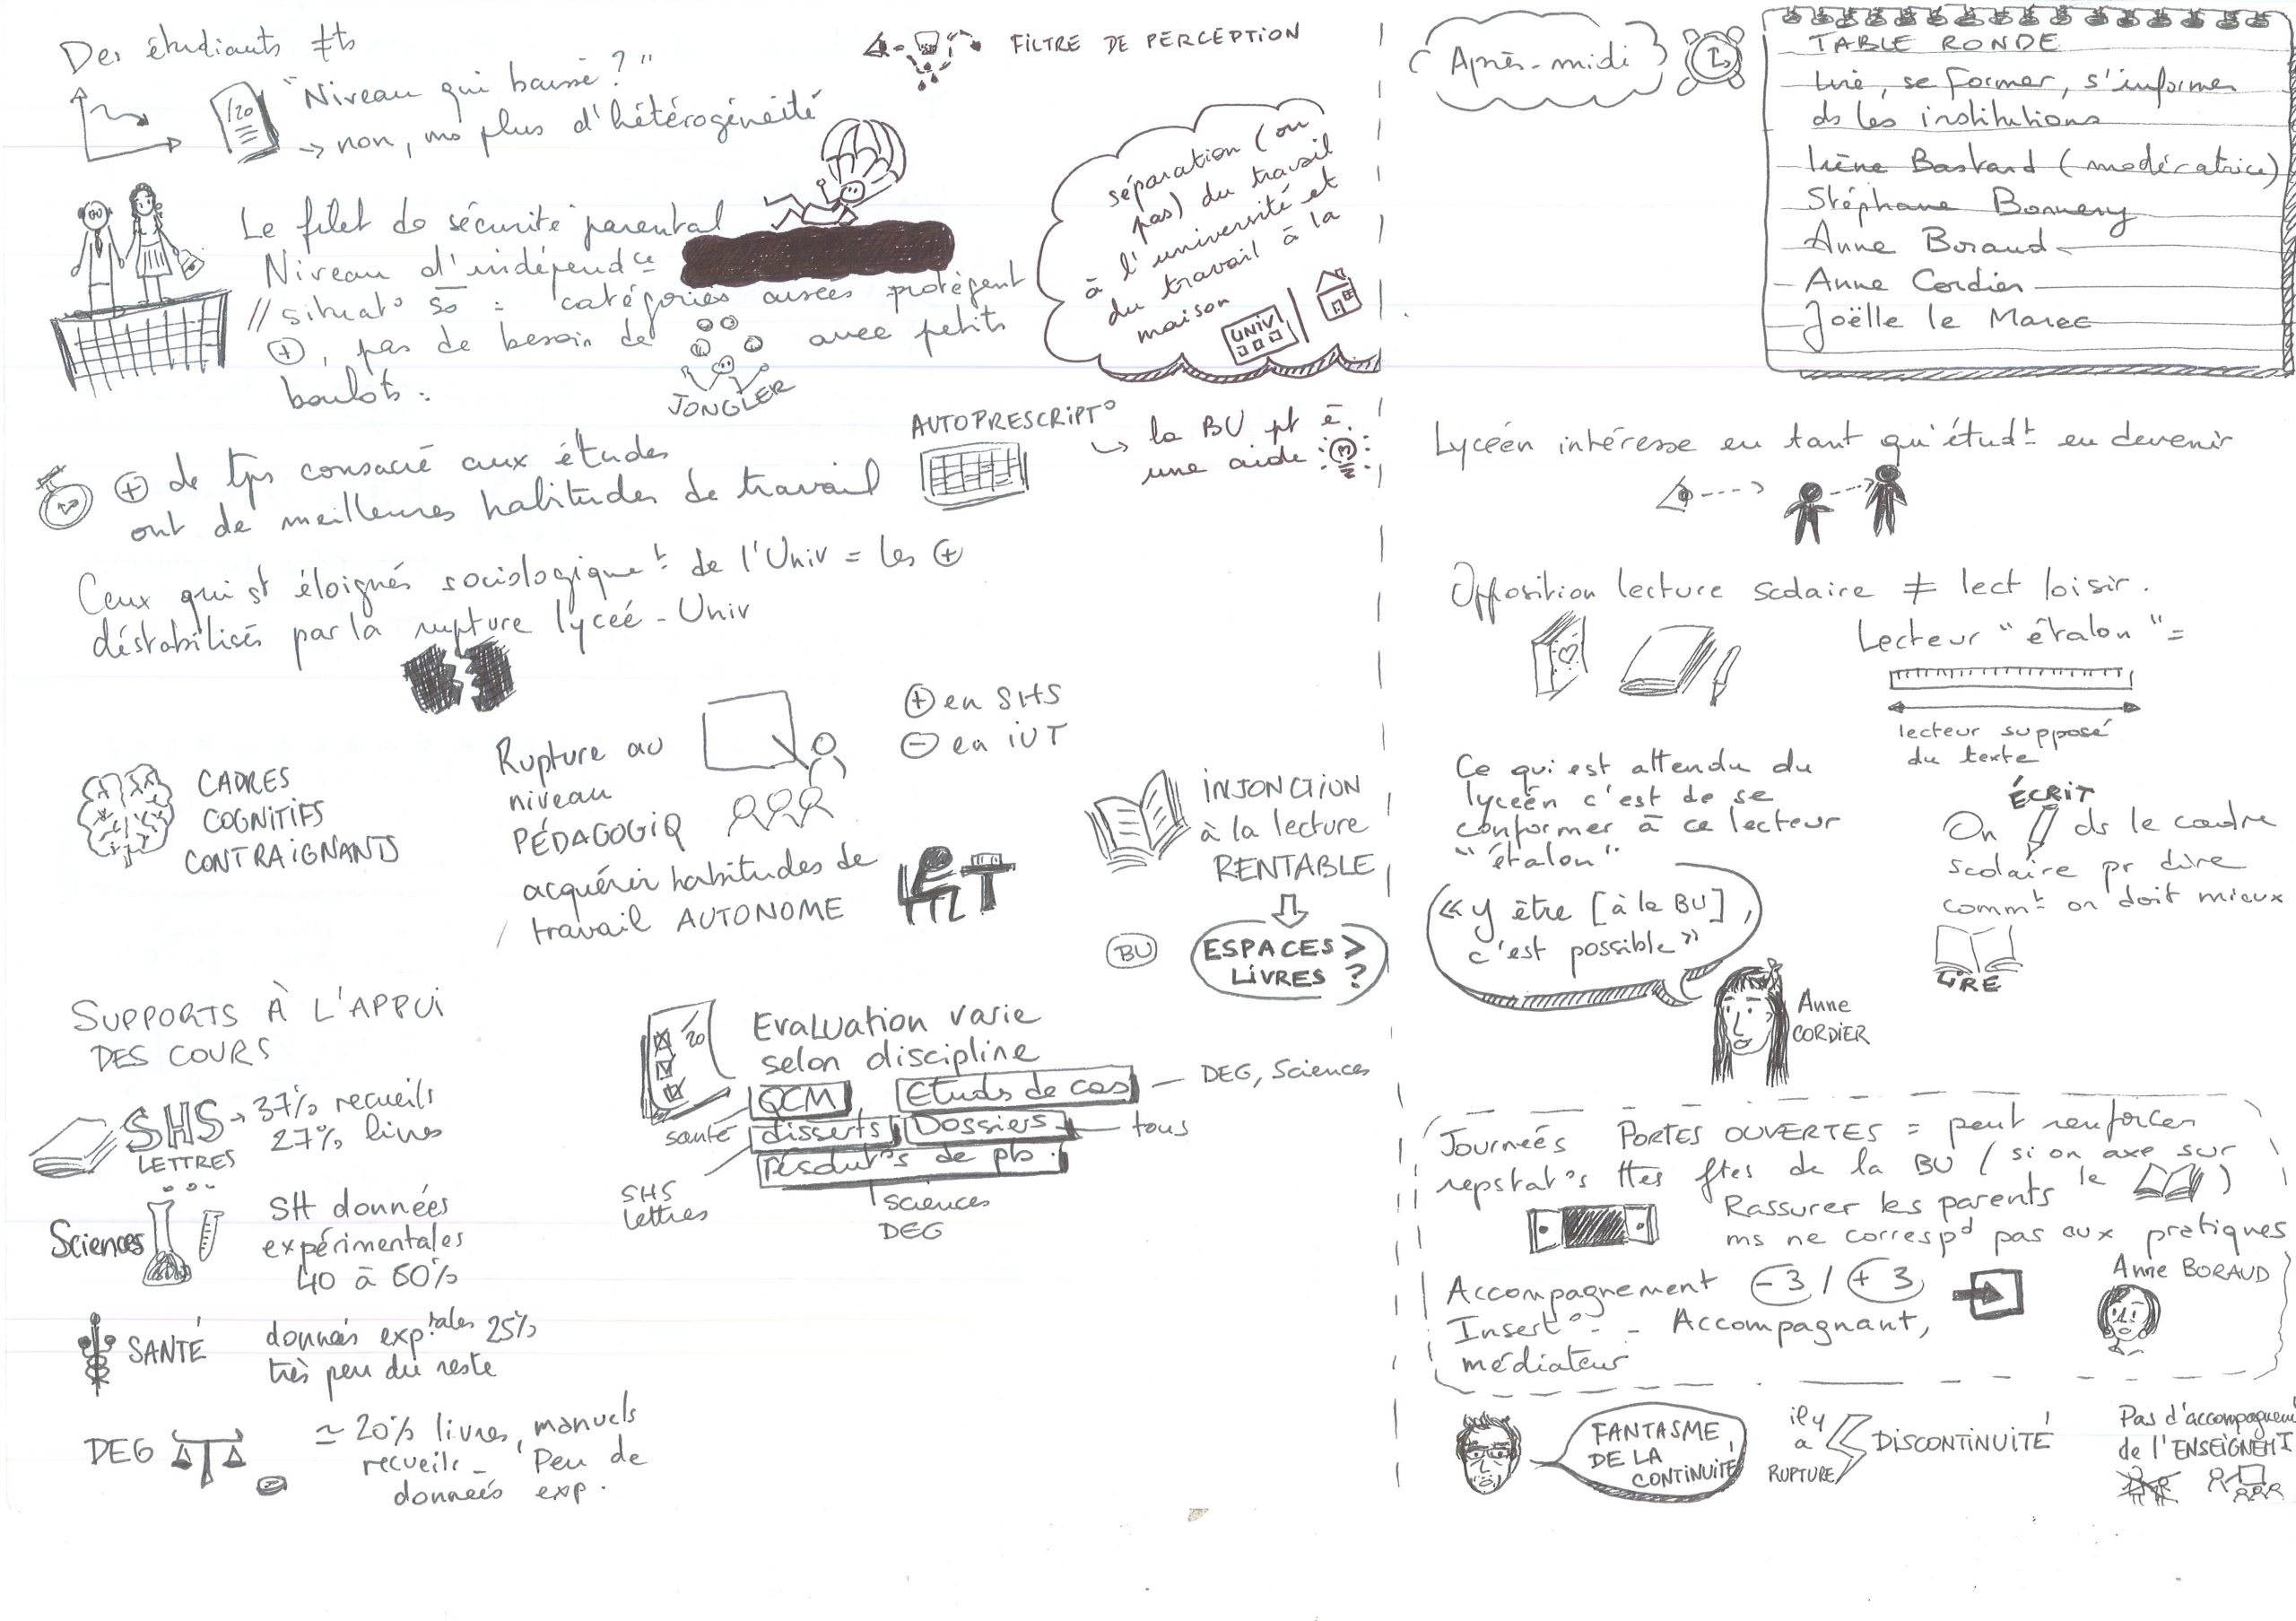 Des étudiants ≠ts
/20
"Niveau qui baisse ?"
→ non, ms plus d'hétérogénéité
FILTRE DE PERCEPTION
Le filet de sécurité parental
Niveau d'indépendce
// situat° so = catégories aisées protègent
⊕, pas de besoin de
avec petits
boulots.
JONGLER
séparation (ou
pas) du travail
à l'université et
du travail à la
maison
UNIV
⊕ de tps consacré aux études
ont de meilleures habitudes de travail
AUTOPRESCRIPT°
↳ la BU pt ê
une aide
Ceux qui st éloignés sociologiquet de l'Univ = les ⊕
déstabilisés par la rupture lycée - Univ
CADRES
COGNITIFS
CONTRAIGNANTS
Rupture au
niveau
PÉDAGOGIQ
acquérir habitudes de
travail AUTONOME
⊕ en SHS
⊖ en IUT
INJONCTION
à la lecture
RENTABLE
BU
ESPACES >
LIVRES ?
SUPPORTS À L'APPUI
DES COURS
SHS → 37% recueils
27% livres
LETTRES
Sciences
SH données
expérimentales
40 à 60%
SANTÉ
données exptales 25%
très peu du reste
DEG
≃ 20% livres, manuels
recueils _ Peu de
données exp.
/20
Evaluation varie
selon discipline
QCM
Etuds de cas
DEG, Sciences
santé
disserts
Dossiers
tous
résolut°s de pb.
SHS
lettres
sciences
DEG
Après-midi
TABLE RONDE
Lire, se former, s'informer
ds les institutions
Irène Bastard (modératrice)
Stéphane Bonnery
Anne Boraud
Anne Cordier
Joëlle le Marec
Lycéen intéresse en tant qu'étudt en devenir
Opposition lecture scolaire ≠ lect loisir.
Lecteur "étalon" =
lecteur supposé
du texte
Ce qui est attendu du
lycéen c'est de se
conformer à ce lecteur
"étalon"
ÉCRIT
On ds le cadre
scolaire pr dire
commt on doit mieux
LIRE
« y être [à la BU],
c'est possible »
Anne
CORDIER
Journées PORTES OUVERTES = peut renforcer
repstat°s ttes ftes de la BU (si on axe sur
le )
Rassurer les parents
ms ne correspd pas aux pratiques
Accompagnement -3 / +3
Insert° _ _ Accompagnant,
médiateur
Anne BORAUD
FANTASME
DE LA
CONTINUITÉ
il y
a
RUPTURE
DISCONTINUITÉ
Pas d'accompagnem
de l'ENSEIGNEMT